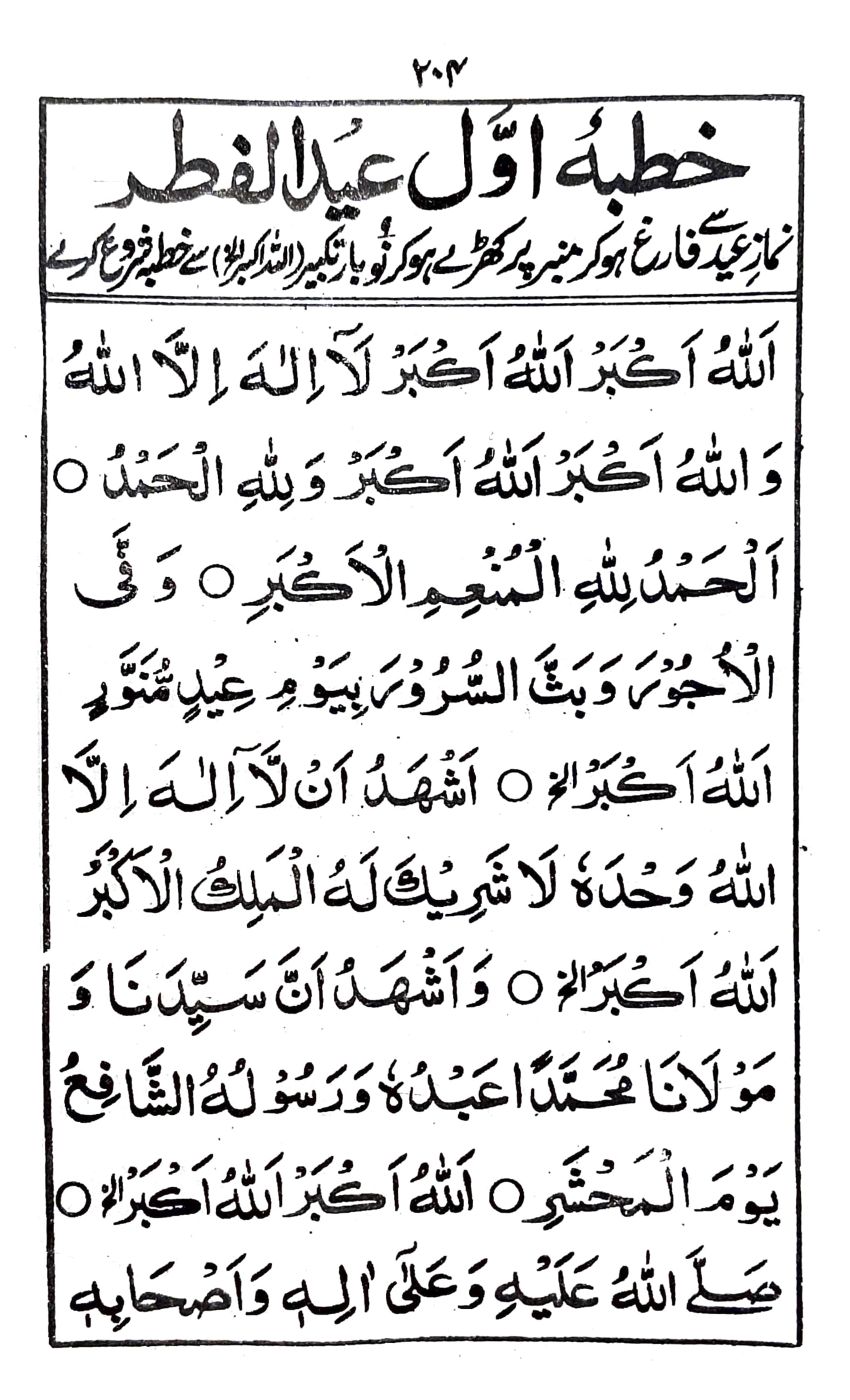 ۲۰۴
خطبۂ اوّل عیدُ الفطر
نمازِ عید سے فارغ ہو کر منبر پر کھڑے ہو کر نَو بار تکبیر (اللہ اکبر الخ) سے خطبہ شروع کرے
اَللّٰهُ اَكْبَرُ اَللّٰهُ اَكْبَرُ لَآ اِلٰهَ اِلَّا اللّٰهُ
وَاللّٰهُ اَكْبَرُ اَللّٰهُ اَكْبَرُ وَلِلّٰهِ الْحَمْدُ ○
اَلْحَمْدُ لِلّٰهِ الْمُنْعِمِ الْاَكْبَرِ ○ وَفَّى
الْاُجُوْرَ وَبَثَّ السُّرُوْرَ بِيَوْمِ عِيْدٍ مُّنَوَّرٍ
اَللّٰهُ اَكْبَرُ الخ ○ اَشْهَدُ اَنْ لَّآ اِلٰهَ اِلَّا
اللّٰهُ وَحْدَهٗ لَا شَرِيْكَ لَهُ الْمَلِكُ الْاَكْبَرُ
اَللّٰهُ اَكْبَرُ الخ ○ وَاَشْهَدُ اَنَّ سَيِّدَنَا وَ
مَوْلَانَا مُحَمَّدًا عَبْدُهٗ وَرَسُوْلُهُ الشَّافِعُ
يَوْمَ الْمَحْشَرِ ○ اَللّٰهُ اَكْبَرُ اَللّٰهُ اَكْبَرُ الخ ○
صَلَّى اللّٰهُ عَلَيْهِ وَعَلٰٓى اٰلِهٖ وَاَصْحَابِهٖ